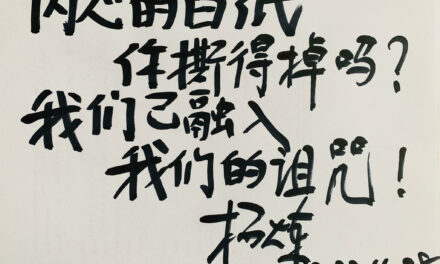 内心的白纸
你撕得掉吗？
我们已融入
我们的诅咒！
杨炼